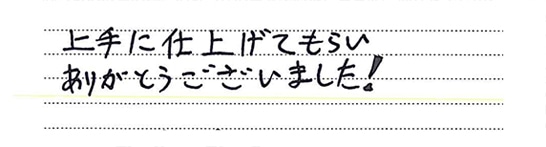 上手に仕上げてもらい
ありがとうございました!